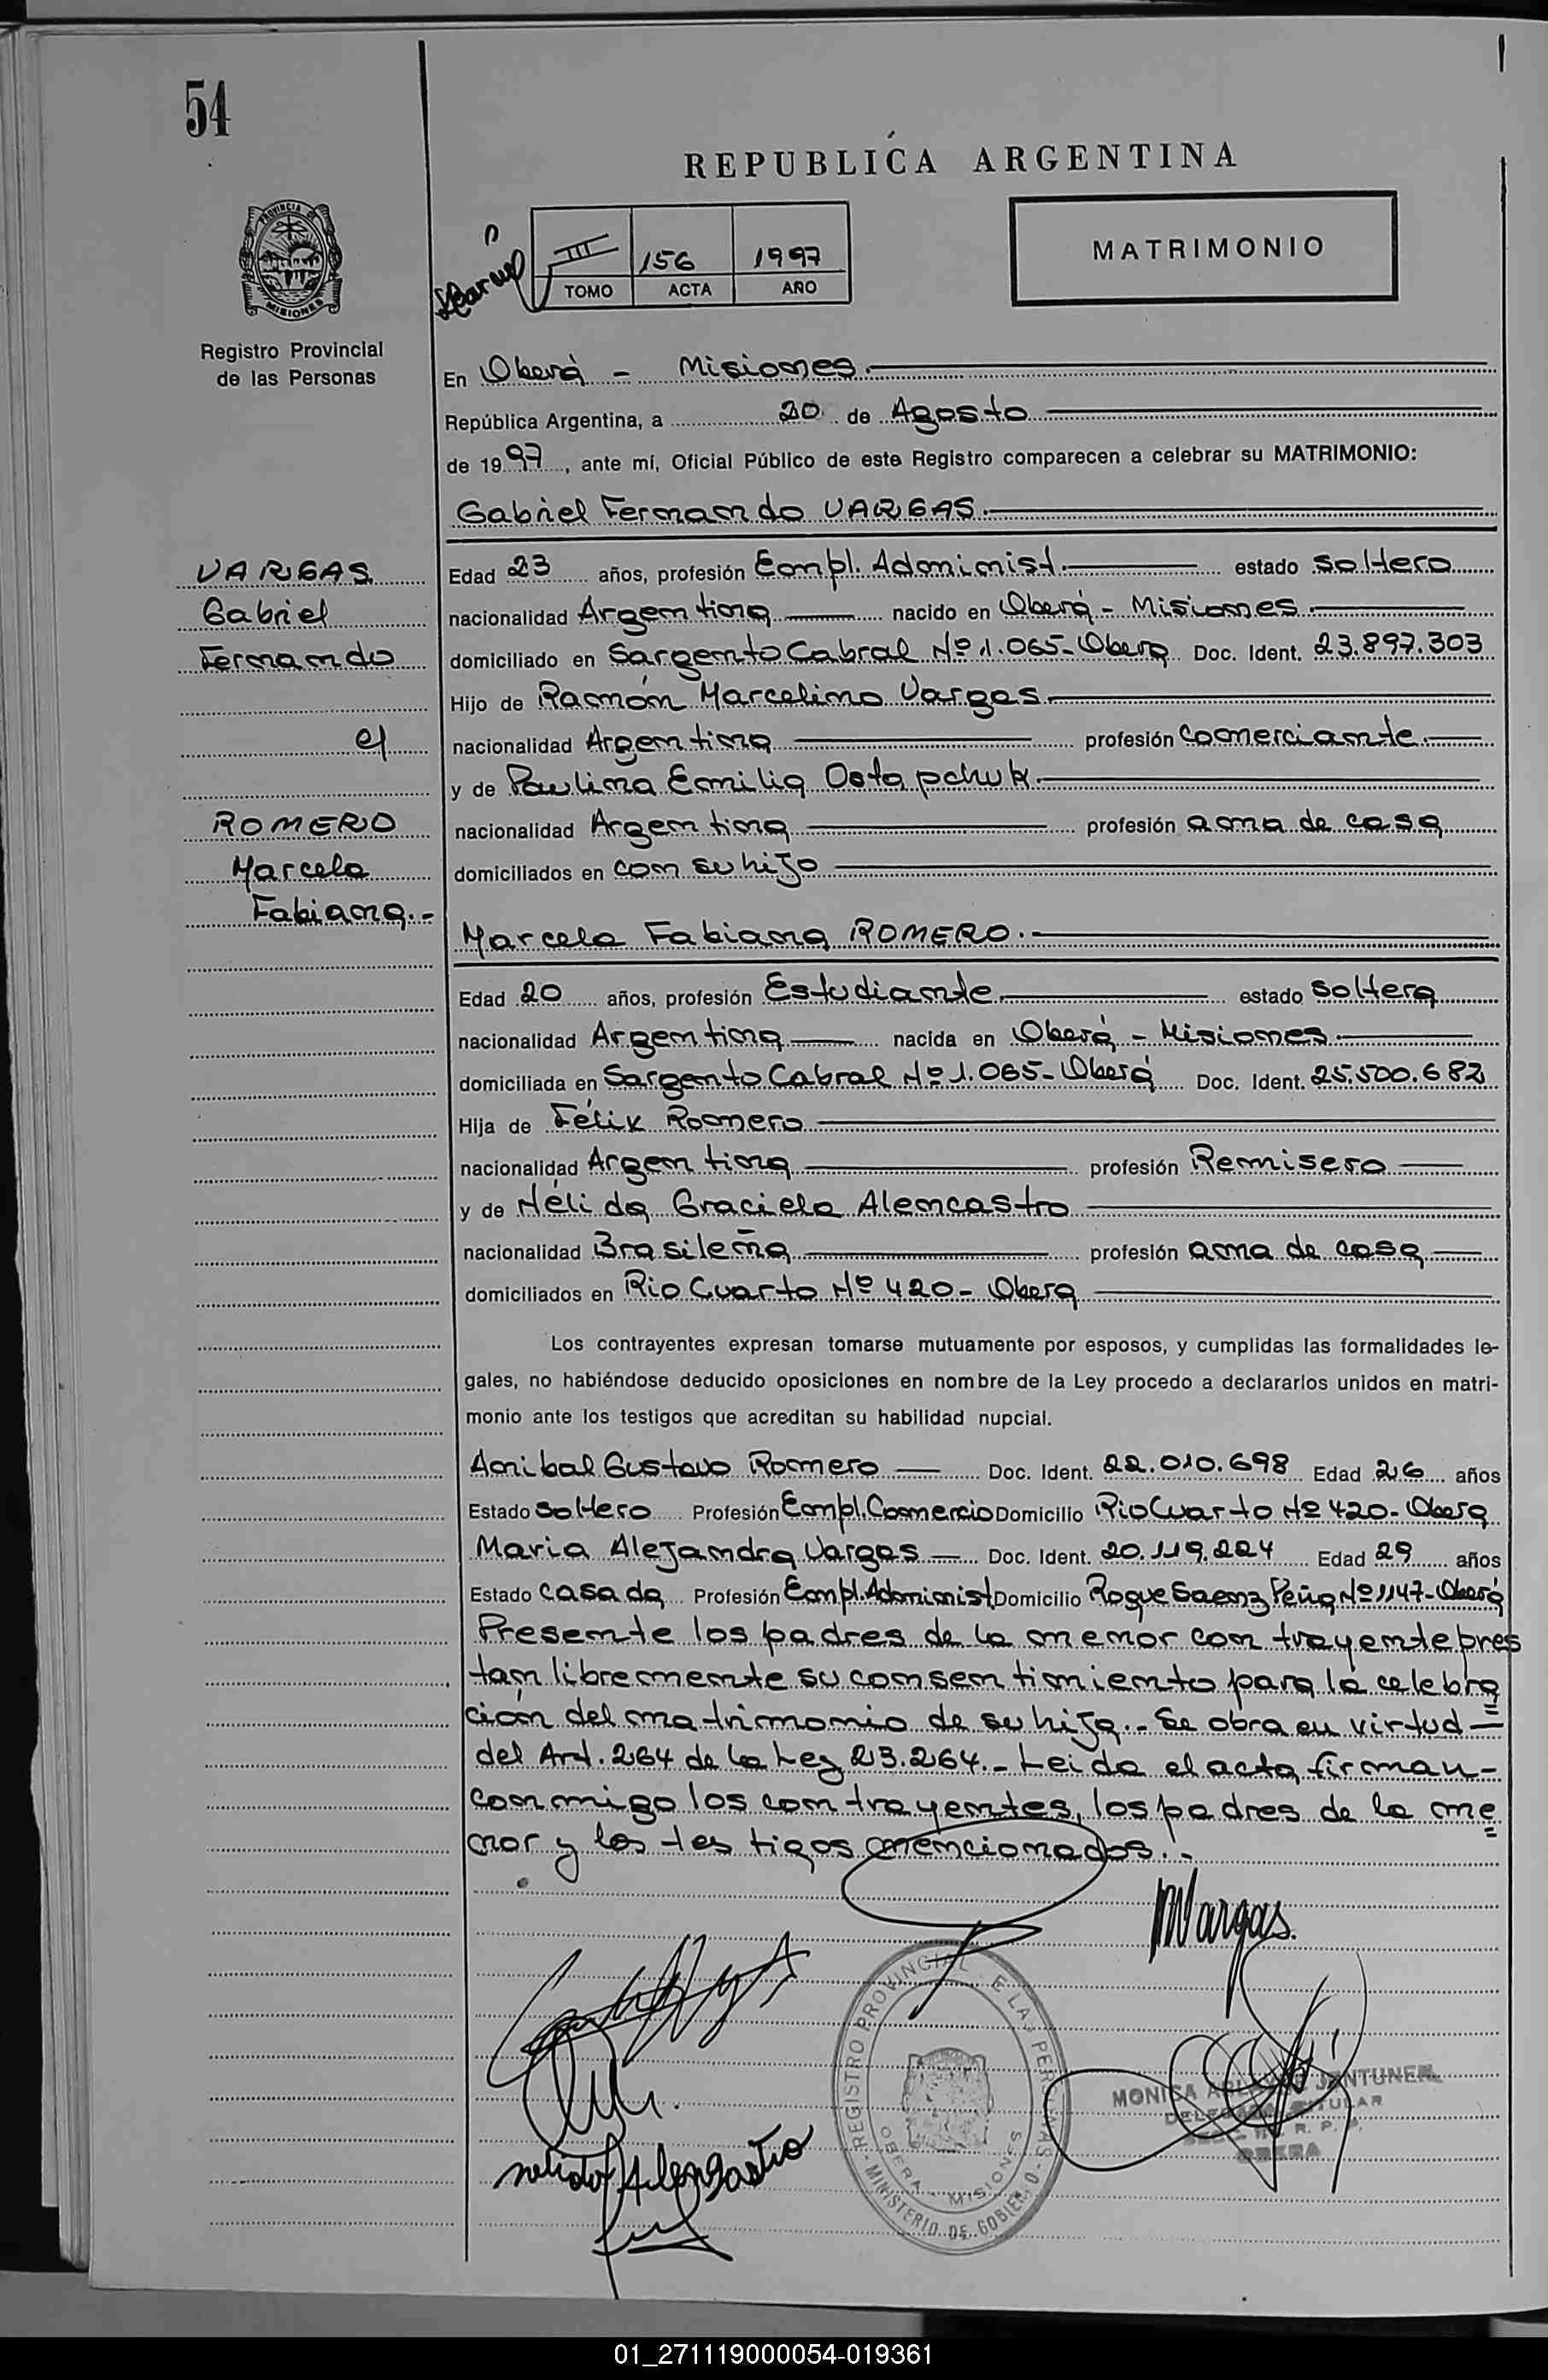 54
REPUBLICA ARGENTINA
PROVINCIA DE
MISIONES
Registro Provincial
de las Personas
III 156 1997
TOMO ACTA AÑO
MATRIMONIO
En Oberá - Misiones.
República Argentina, a 20 de Agosto
de 1997, ante mí, Oficial Público de este Registro comparecen a celebrar su MATRIMONIO:
Gabriel Fernando VARGAS.
VARGAS
Gabriel
Fernando
e/
ROMERO
Marcela
Fabiana.-
Edad 23 años, profesión Empl. Administ. estado soltero
nacionalidad Argentina nacido en Oberá - Misiones.
domiciliado en Sargento Cabral Nº 1.065-Oberá Doc. Ident. 23.897.303
Hijo de Ramón Marcelino Vargas.
nacionalidad Argentina profesión comerciante.
y de Paulina Emilia Ostapchuk.
nacionalidad Argentina profesión ama de casa
domiciliados en con su hijo
Marcela Fabiana ROMERO.
Edad 20 años, profesión Estudiante. estado soltera
nacionalidad Argentina nacida en Oberá - Misiones.
domiciliada en Sargento Cabral Nº 1.065-Oberá Doc. Ident. 25.500.682
Hija de Félix Romero
nacionalidad Argentina profesión Remisero
y de Nélida Graciela Alencastro
nacionalidad Brasileña profesión ama de casa
domiciliados en Rio Cuarto Nº 420- Obera
Los contrayentes expresan tomarse mutuamente por esposos, y cumplidas las formalidades le-
gales, no habiéndose deducido oposiciones en nombre de la Ley procedo a declararlos unidos en matri-
monio ante los testigos que acreditan su habilidad nupcial.
Anibal Gustavo Romero Doc. Ident. 22.010.698 Edad 26 años
Estado soltero Profesión Empl. Comercio Domicilio Rio Cuarto Nº 420-Obera
Maria Alejandra Vargas Doc. Ident. 20.119.224 Edad 29 años
Estado casada Profesión Empl. Administ. Domicilio Roque Saenz Peña Nº 1147-Oberá
Presente los padres de la menor contrayente pres
tan libremente su consentimiento para la celebra
ción del matrimonio de su hija.- Se obra en virtud=
del Art. 264 de la Ley 23.264.- Leida el acta, firman-
conmigo los contrayentes, los padres de la me
nor y los testigos mencionados.-
MVargas.
Nelida Alencastro
REGISTRO PROVINCIAL DE LAS PERSONAS
MINISTERIO DE GOBIERNO
OBERA - MISIONES
MONICA
DELEGADA TITULAR
R. P. P.
OBERA
01_271119000054-019361